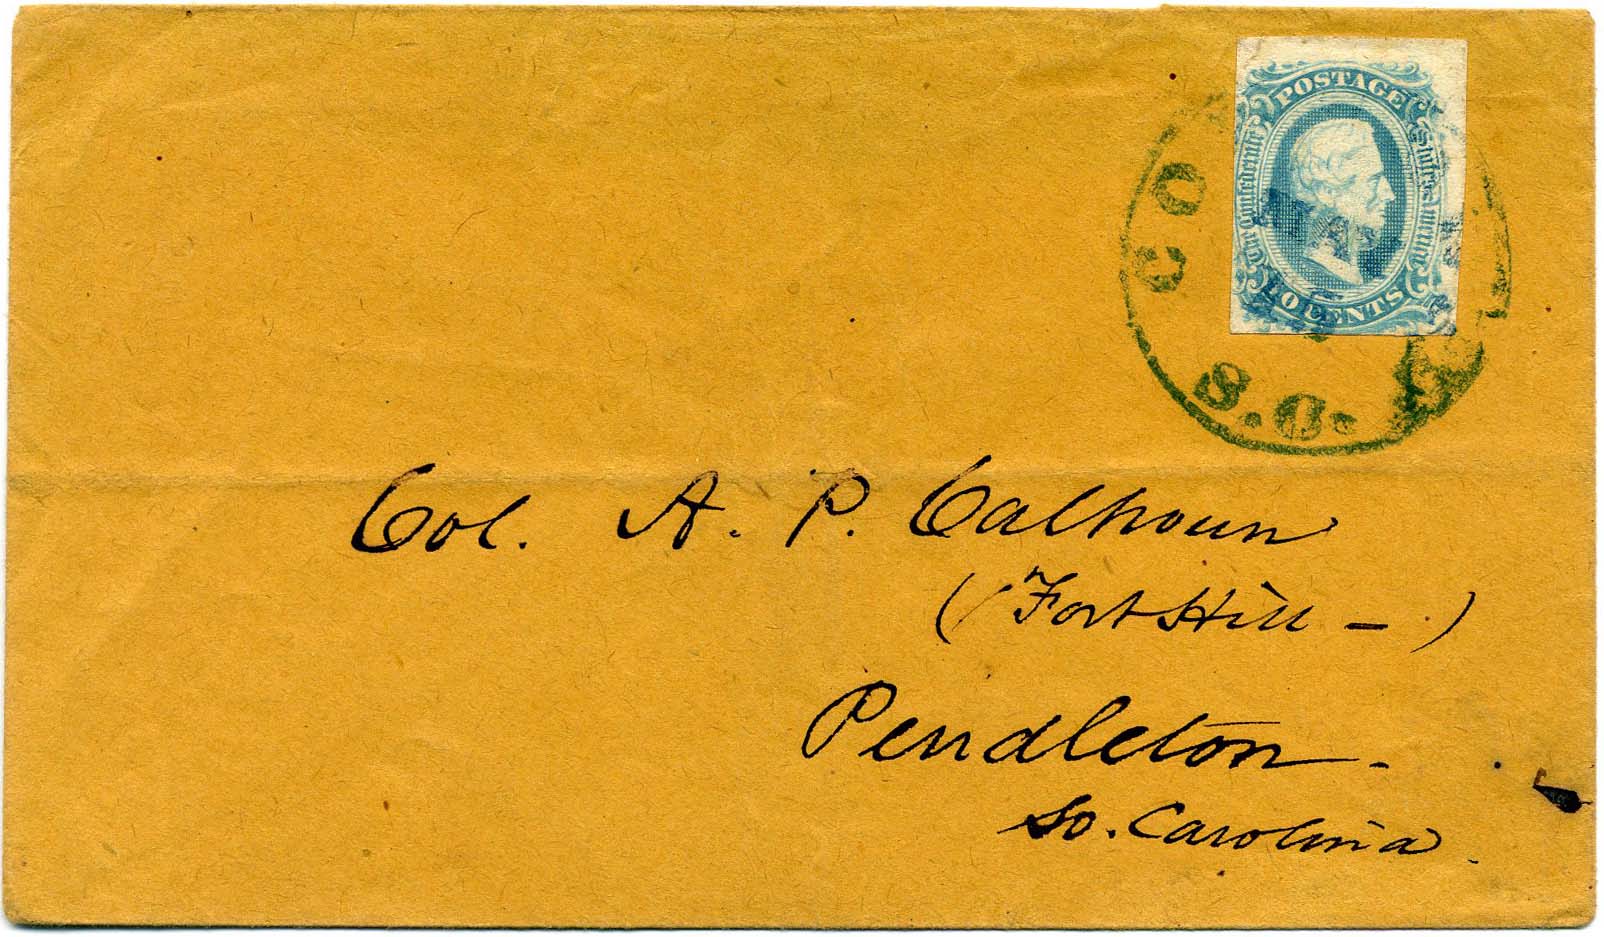 POSTAGE
The Confederate States America
10 CENTS
CO
S.C.
Col. A. P. Calhoun
(Fort Hill - )
Pendleton -
So. Carolina